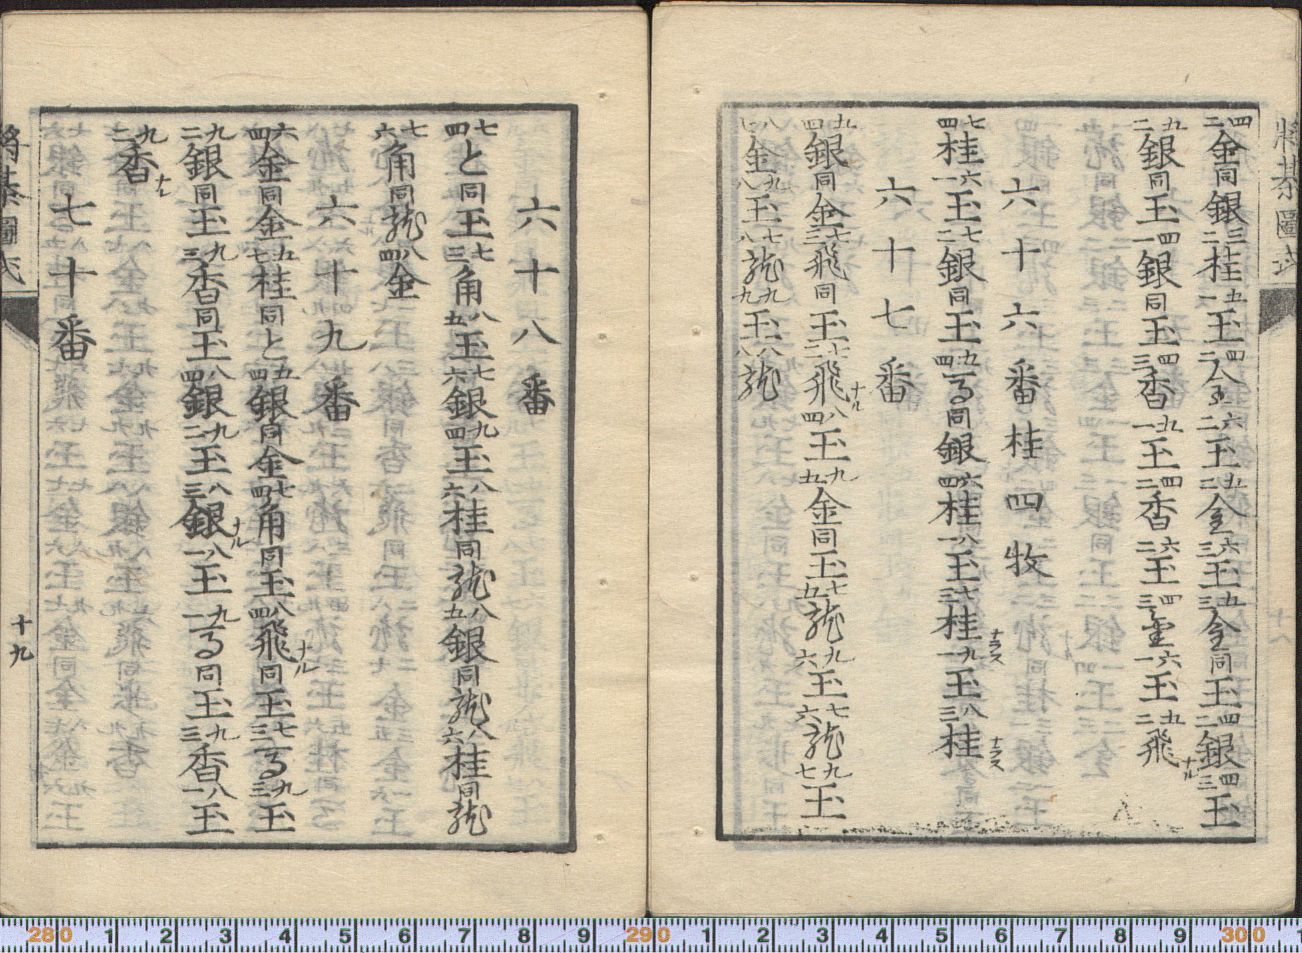 将棊圖式
四二金同銀二三桂一五王二四金二六王二五金三六王三五金同王二四銀三四王
五二銀同王一四銀同王三四香一九王二四香二六王三四金一六王二五飛ナル
六十六番桂四牧
七四桂一六王二七銀同王四五馬同銀四六桂一八王三七桂ナラス一九王三八桂ナラス
六十七番
九四銀同金三七飛同王二七飛ナル四八王五九金同王五七龍六九王六七龍七九王
八九王八七龍九九王八八龍
六十八番
七四と同王三七角五八王六七銀四九王六八桂同龍五八銀同龍六八桂同龍
七六角同龍四八金
六十九番
六四金同金七五桂同と四五銀同金四七角同玉四八飛ナル同王三七馬三九玉
九二銀同王三九香同王四八銀二九王三八銀ナル一八王一九馬同王三九香一八王
九二香ナル
七十番
十九
280 1 2 3 4 5 6 7 8 9 290 1 2 3 4 5 6 7 8 9 300 1